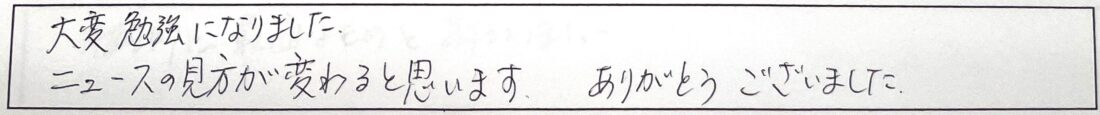 大変勉強になりました.
ニュースの見方が変わると思います. ありがとうございました.